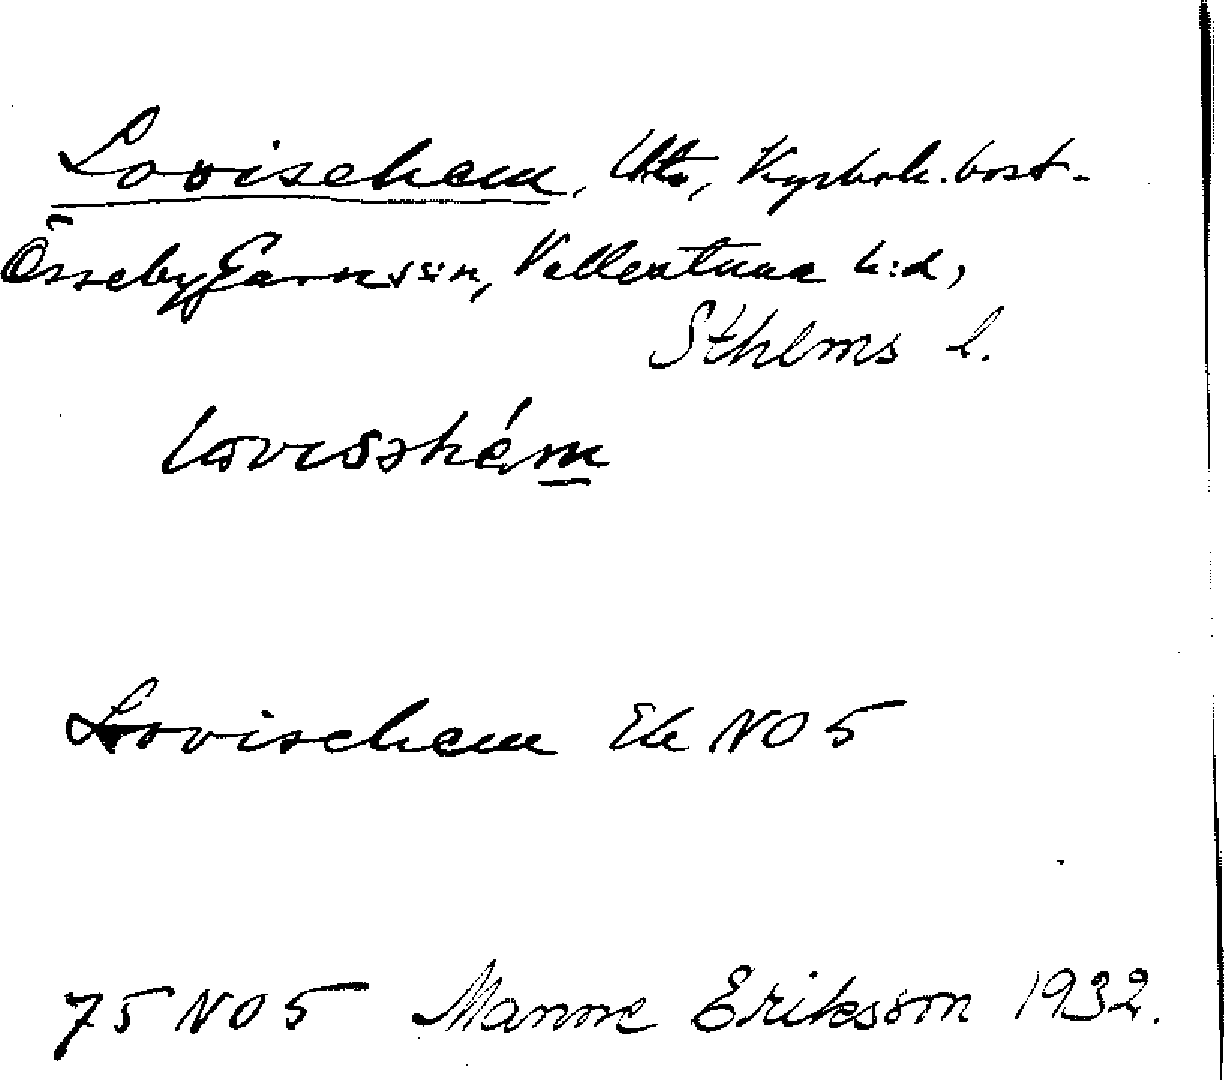 Lovischem, Uto, Kyrkoh. bost.
Össeby Garns sn, Vallentuna h:d,
Sthlms l.
Lovischem Ek NO 5
75 NO 5 Manne Eriksson 1932.